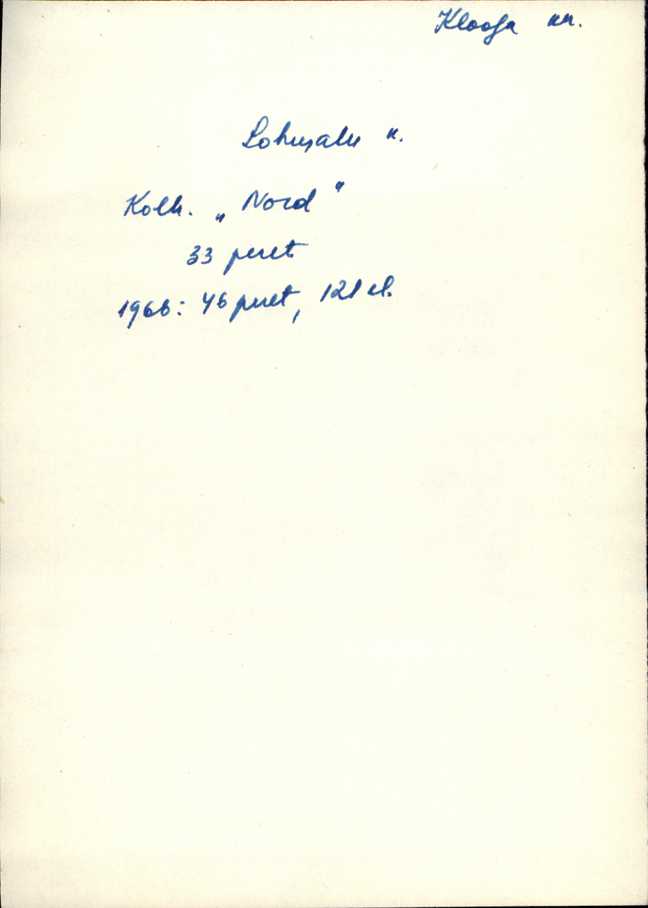 Klooga kn.
Lohusalu k.
Kolh. „Nord"
33 peret
1966: 46 peret, 121 el.